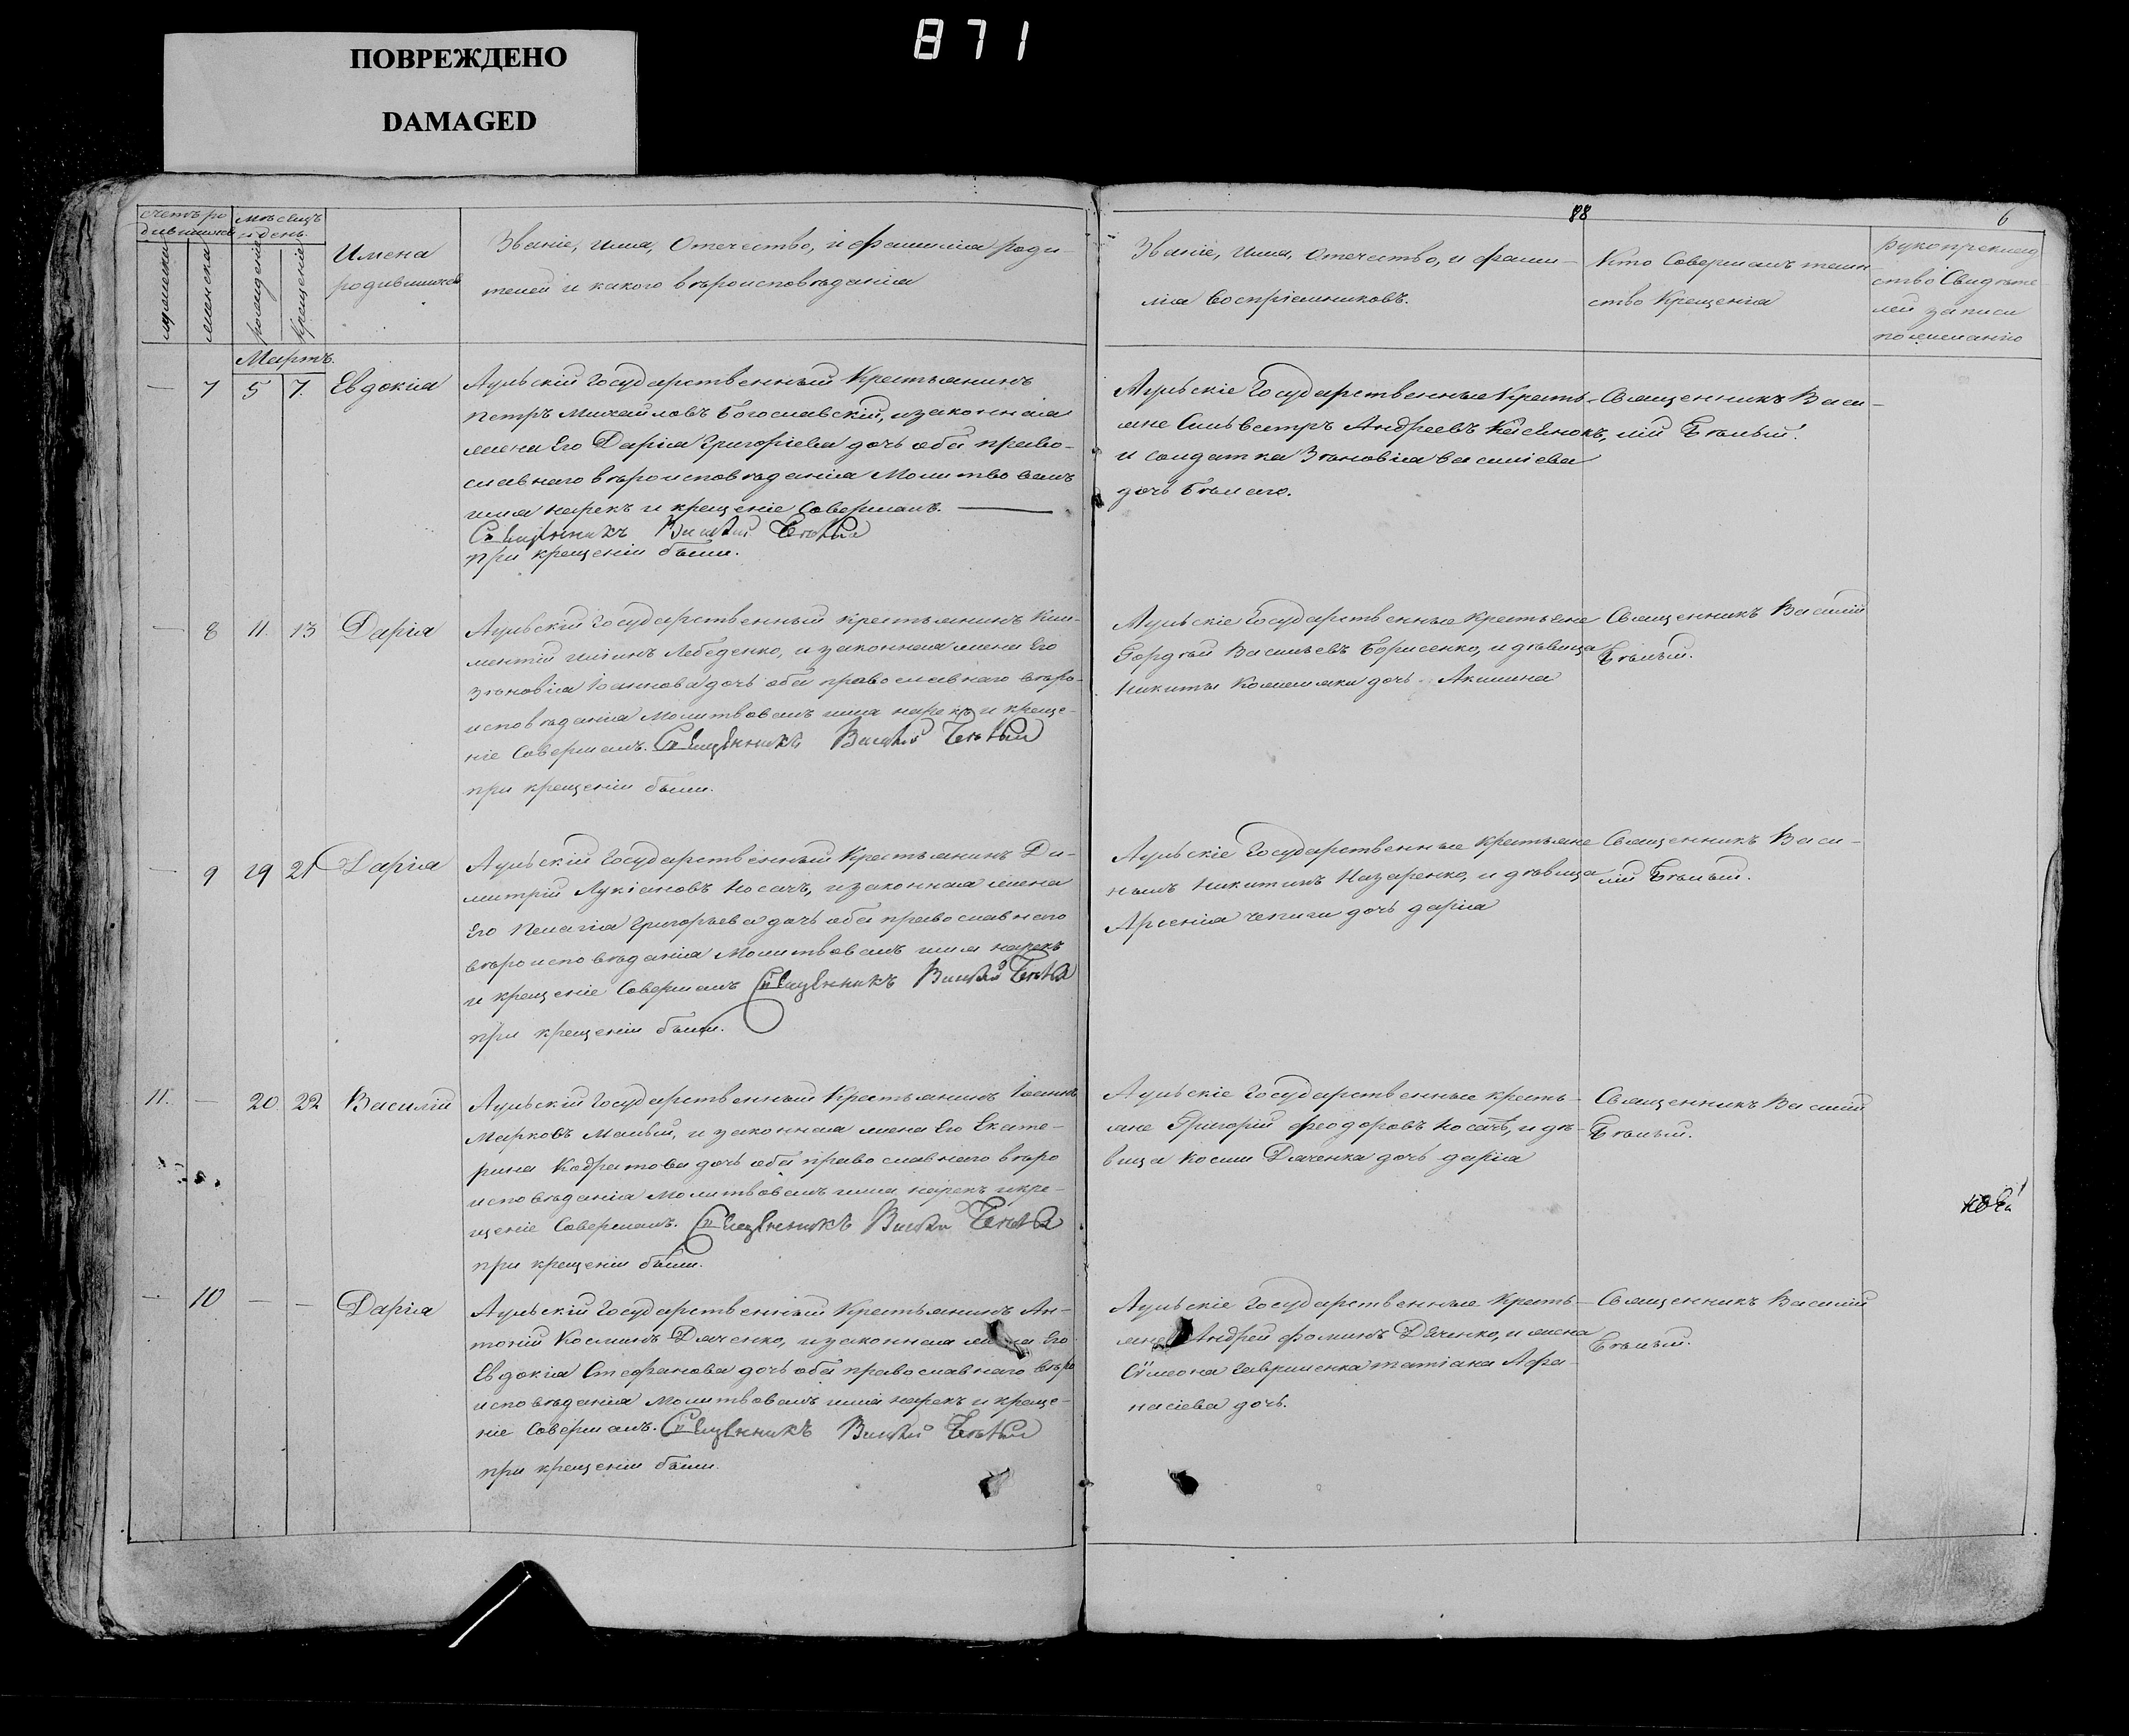 871
ПОВРЕЖДЕНО
DAMAGED
88
6
счетъ ро
дившихся
мѣсяцъ
и день.
мужеска
женска
рожденіе
крещеніе
Имена
родившихся
Званіе, имя, Отечество, и фамилія роди-
телей и какого вѣроисповѣданія
Званіе, имя, Отечество, и фами-
лія Воспріемниковъ.
Кто Совершалъ таин
ство Крещенія
рукоприклад
ство Свидѣте
лей записи
по желанію
Мартъ.
— 7 5 7. Евдокія
Аульскій Государственный Крестьянинъ
Петръ Михайловъ Богославскій, и законная
жена Его Дарія Григоріева дочь оба право-
славнаго вѣроисповѣданія Молитвовалъ
имя нарекъ и крещеніе Совершалъ. —
Священникъ Василій Бѣлый
при крещеніи были.
Аульскіе Государственные Кресть-
яне Сильвестръ Андреевъ
и солдатка Зѣновія Василіева
дочь Бѣлаго.
Священникъ Васи-
лій Бѣлый.
— 8 11. 13 Дарія
Аульскій Государственный крестьянинъ Кли-
ментій Лебеденко, и законная жена Его
Зѣновія Іоаннова дочь оба православнаго вѣро-
исповѣданія Молитвовалъ имя нарекъ и креще-
ніе Совершалъ. Священникъ Василій Бѣлый
при крещеніи были.
Аульскіе Государственные крестьяне
Гордѣй Васильевъ Борисенко, и дѣвица
Никиты дочь Акилина
Священникъ Василій
Бѣлый.
— 9 19 21 Дарія
Аульскій Государственный Крестьянинъ Ди-
митрій Лукіановъ Носачъ, и законная жена
Его Пелагія Григорьева дочь оба православнаго
вѣроисповѣданія Молитвовалъ имя нарекъ
и крещеніе Совершалъ Священникъ Василій Бѣлый
при крещеніи были.
Аульскіе Государственные крестьяне
Никитинъ Назаренко, и дѣвица
Арсенія Чепиги дочь дарія
Священникъ Васи-
лій Бѣлый.
11. — 20 22 Василій
Аульскій Государственный Крестьянинъ Іоаннъ
Марковъ Малый, и законная жена Его Екате-
рина Кодратова дочь оба православнаго вѣро
исповѣданія Молитвовалъ имя нарекъ и кре-
щеніе Совершалъ. Священникъ Василій Бѣлый
при крещеніи были.
Аульскіе Государственные кресть-
яне Григорій Феодоровъ Носачъ, и дѣ-
вица Космы Дяченка дочь дарія
Священникъ Василій
Бѣлый.
— 10 — — Дарія
Аульскій Государственный Крестьянинъ Ан-
тоній Косминъ Дяченко, и законная жена Его
Евдокія Стефанова дочь оба православнаго вѣро
исповѣданія Молитвовалъ имя нарекъ и креще-
ніе Совершалъ. Священникъ Василій Бѣлый
при крещеніи были.
Аульскіе Государственные Кресть-
яне Андрей Фоминъ Дяченко, и жена
Сѵмеона Гавриленка татіана Афа-
насіева дочь.
Священникъ Василій
Бѣлый.